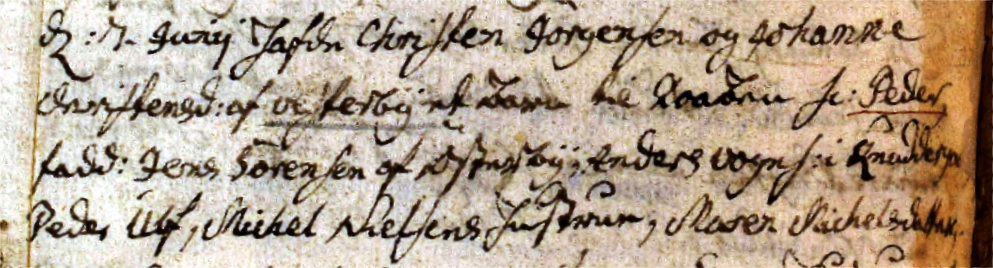 d: 7. Junij hafde Christen Jörgensen og Johanne
Christensd: af Vesterbÿ et Barn til Daaben h: Peder
fadd: Jens Sörensen af Østerbÿ, Anders Vogns: i
Peder Ulf, Michel Nielsens Hustrue, Maren Michelsdatter.